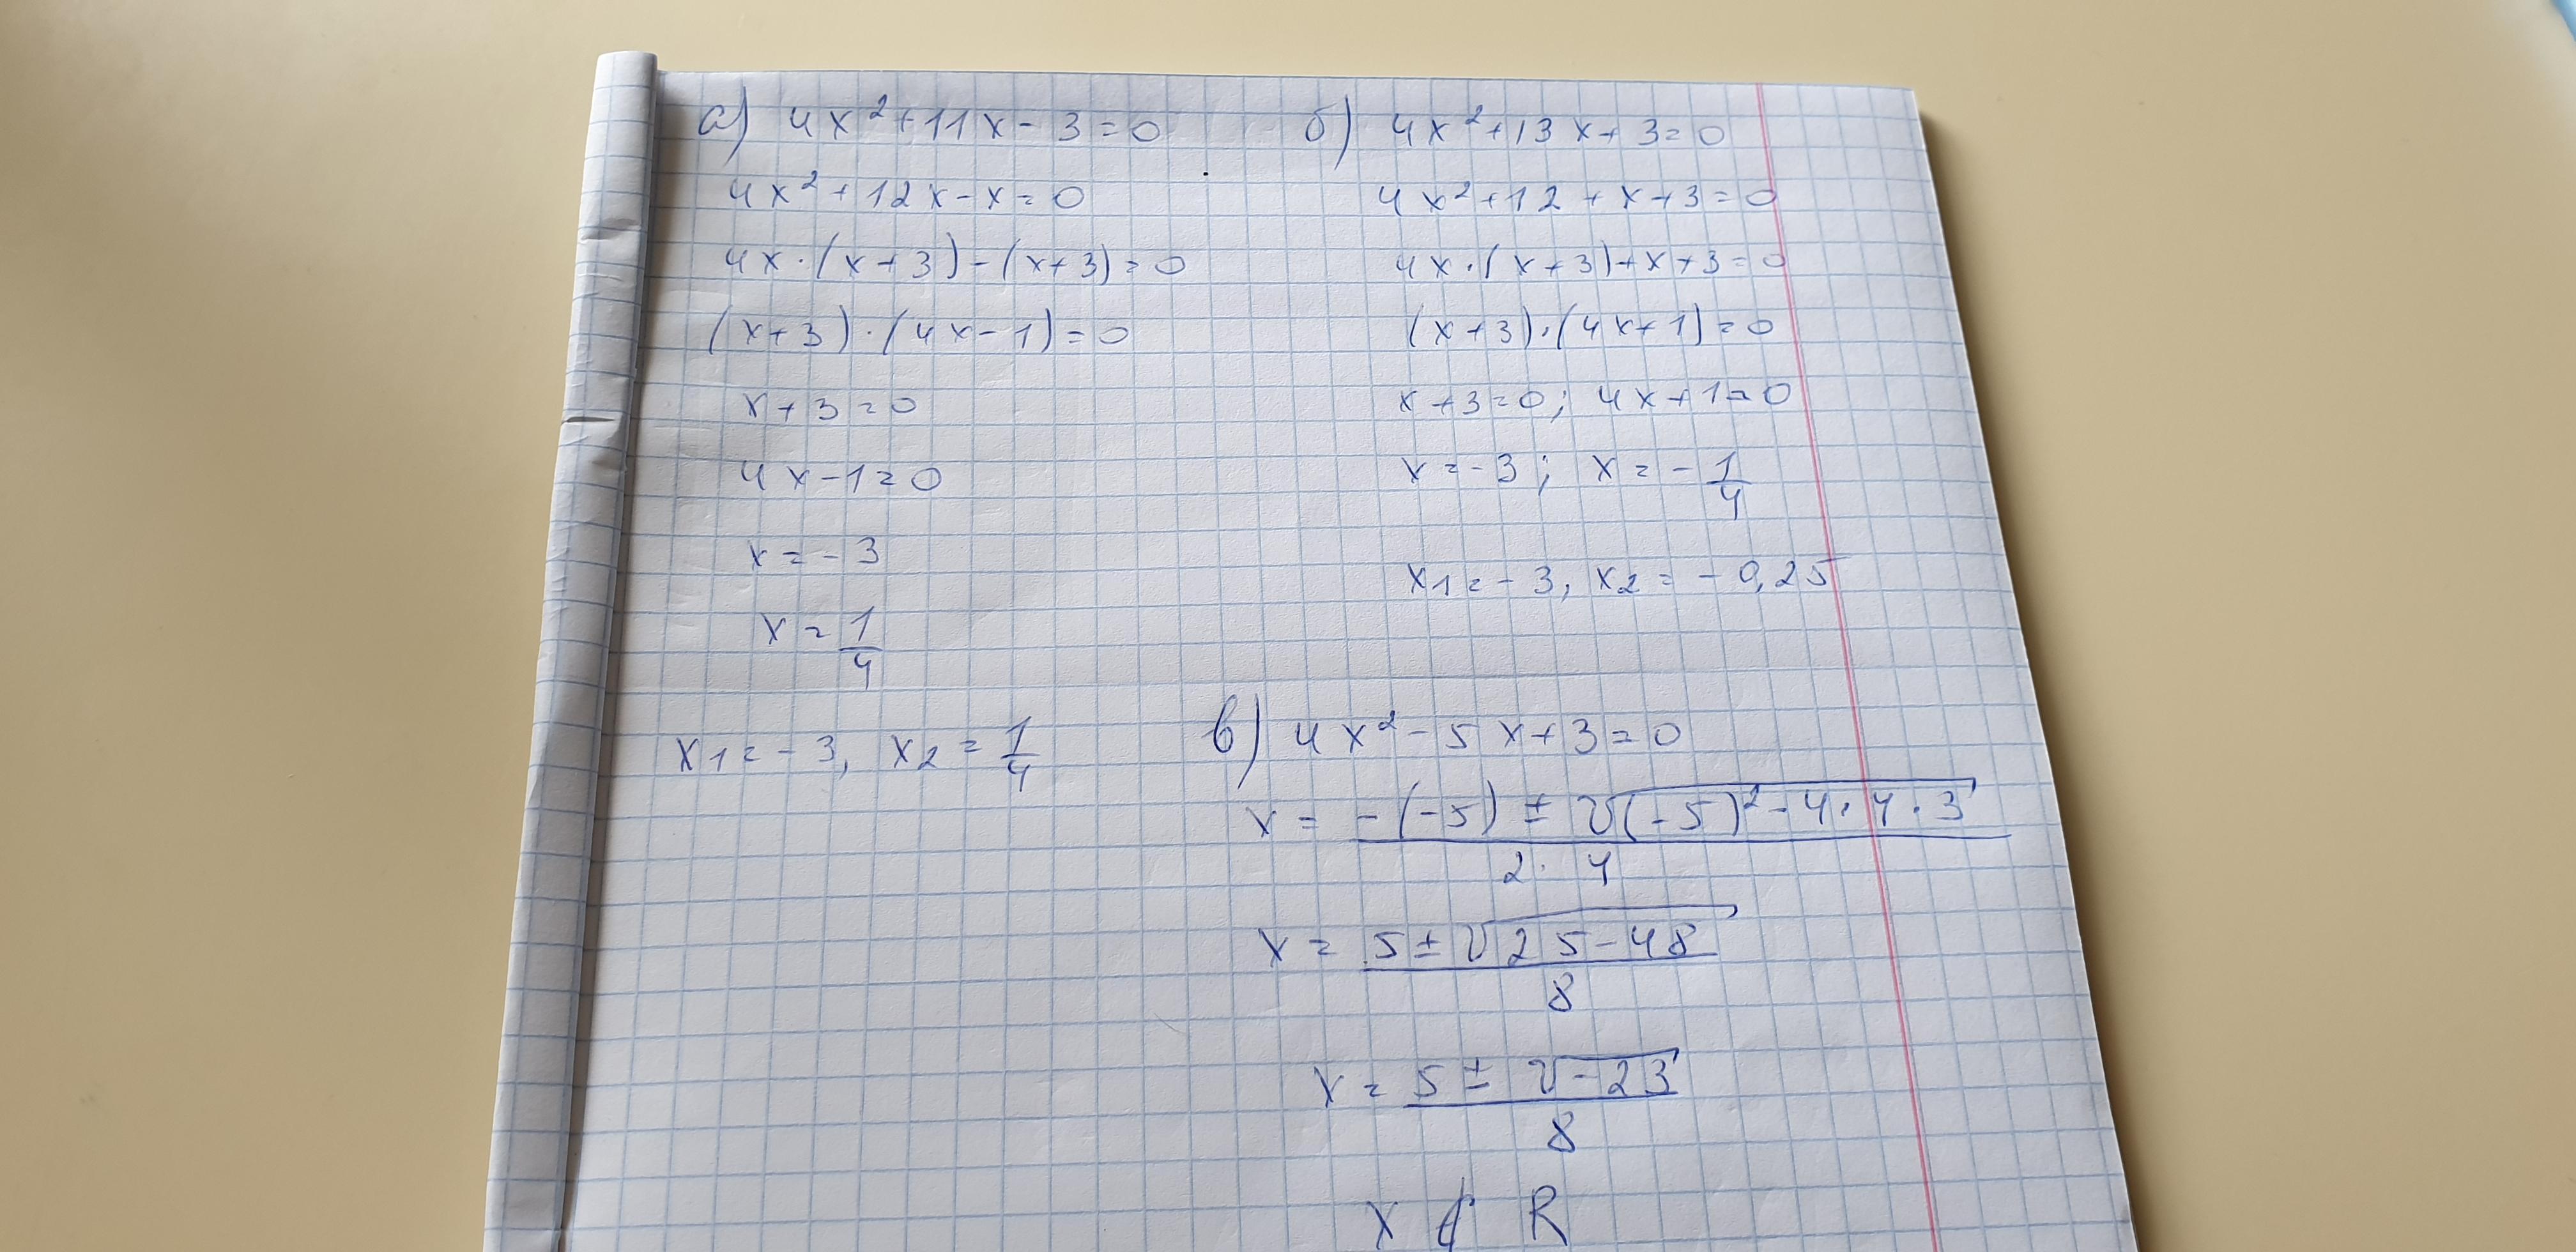 а) 4x²+11x-3=0
4x²+12x-x=0
4x·(x+3)-(x+3)=0
(x+3)·(4x-1)=0
x+3=0
4x-1=0
x=-3
x=1/4
x1=-3, x2=1/4
б) 4x²+13x+3=0
4x²+12+x+3=0
4x·(x+3)+x+3=0
(x+3)·(4x+1)=0
x+3=0; 4x+1=0
x=-3; x=-1/4
x1=-3, x2=-0,25
в) 4x²-5x+3=0
x=(-(-5)±√((-5)²-4·4·3))/(2·4)
x=(5±√(25-48))/8
x=(5±√(-23))/8
x∉R